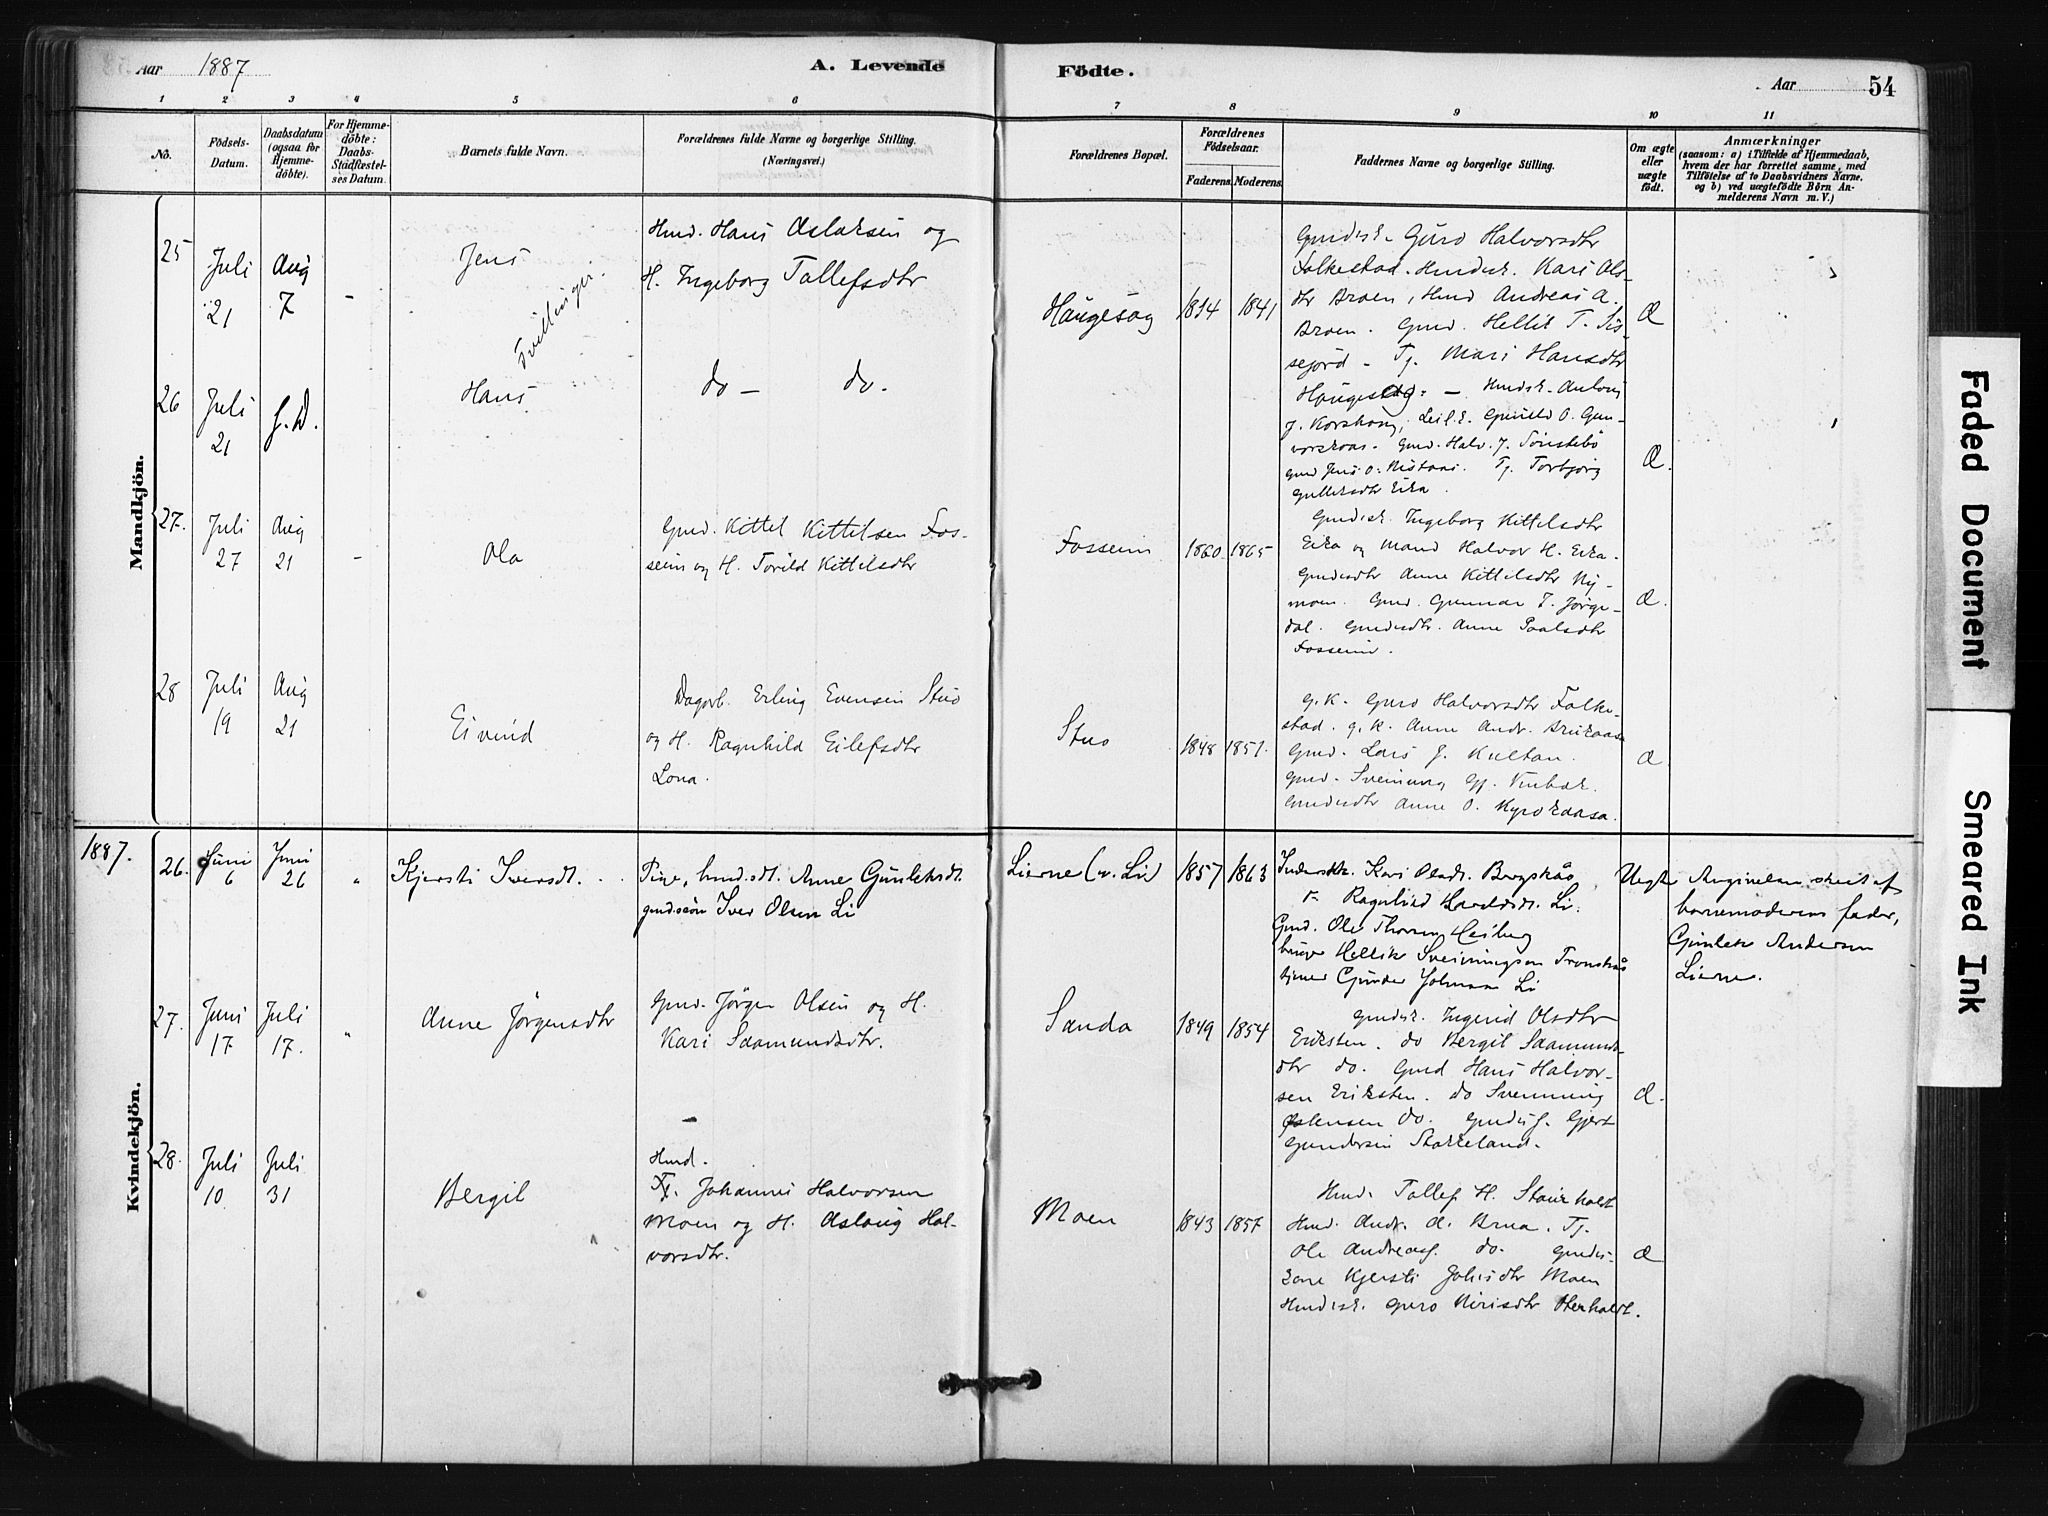 Aar 1887
A. Levende
Födte.
Aar 54
1 2 3 4 5 6 7 8 9 10 11
No.
Födsels-
Datum.
Daabsdatum
(ogsaa for
Hjemme-
döbte).
For Hjemme-
döbte:
Daabs-
Stadfæstel-
ses Datum.
Barnets fulde Navn.
Forældrenes fulde Navne og borgerlige Stilling.
(Næringsvei.)
Forældrenes Bopæl.
Forældrenes
Födselsaar.
Faderens. Moderens.
Faddernes Navne og borgerlige Stilling.
Om ægte
eller
uægte
födt.
Anmærkninger
(saasom: a) i Tilfælde af Hjemmedaab,
hvem der har forrettet samme, med
Tilföielse af to Daabsvidners Navne.
og b) ved uægtefödte Börn An-
melderens Navn m. V.)
Mandkjön.
25
Juli
21
Aug
7
-
Jens
Tvillinger.
Hmd. Hans Aslaksen og
H. Ingeborg Tollefsdtr
Haugesag
1841
Gmdsk. Guro Halvorsdtr
Falkestad. Hmdsk. Kari Ols-
dtr Braen, Hmd Andreas A.
Braen. Gmd. Hellik T.
Tj. Mari Hansdtr
Æ
26
Juli
21
s. D.
Hans
do - do.
Hmdsk.
Gmd. Halv. J.
Gmd Jens O. Tj. Torbjörg
Æ.
27.
Juli
27
Aug
21
-
Ola
Gmd. Kittel Kittilsen Fos-
seim og H. Torild Kittilsdtr
Fosseim
1860 1865
Gmdsk. Ingeborg Kittelsdtr
Eika og Mand Halvor H. Eika.
Gmdsdtr Anne Kittilsdtr My-
moen. Gmd. Gunnar T. Jörge-
dal. Gmdsdtr. Anne Paalsdtr
Fosseim.
Æ.
28
Juli
19
Aug
21
Eivind
Dagarb. Erling Evensen Stuo
og H. Ragnhild Eilefsdtr
Lona.
Stuo
1848 1851.
g.k. Guro Halvorsdtr Falke-
stad. g.k. Anne Andr.
Gmd. Lars J. Kultan.
Gmd. Sveinung Gj.
Gmdsdtr Anne O.
Æ
1887.
Kvindekjön.
26.
Juni
6
Juni
26
"
Kjersti Iversdt.
Pige, hmd.sdt. Anne Gunleksdt.
gmd.sön Iver Olsen Li
Lierne (v. Li)
1857 1863
Kari Olsdt. Bergskås
Ragnhild Li.
Gmd. Ole Thorsen Heiberg
Hellik Sveinungsen
tjener Gunder Johnsen Li
Uegte
Angivelsen skeet af
barnemoderens fader,
Gunlek Andersen
Lierne.
27.
Juni
17
Juli
17.
"
Anne Jörgensdtr
Gmd. Jörgen Olsen og H.
Kari Saamundsdtr.
Sanda
1849 1854
gmdsk. Ingerid Olsdtr
Eriksten. do Bergit Saamunds-
dtr do. Gmd Hans Halvor-
sen Eriksten. do Svenning
do. Gjert
Gundersen Stokkeland.
Æ.
28.
Juli
10
Juli
31
Bergit
Hmd.
Tj. Johannes Halvorsen
Moen og H. Aslaug Hal-
vorsdtr.
Moen
1843 1857
Hmd. Tollef H.
Hmd. Andr. A. Brua. Tj.
Ole Andreas. do. Gmds-
kone Kjersti Johsdtr Moen
Hmdsk. Guro
Æ
Faded Document
Smeared Ink